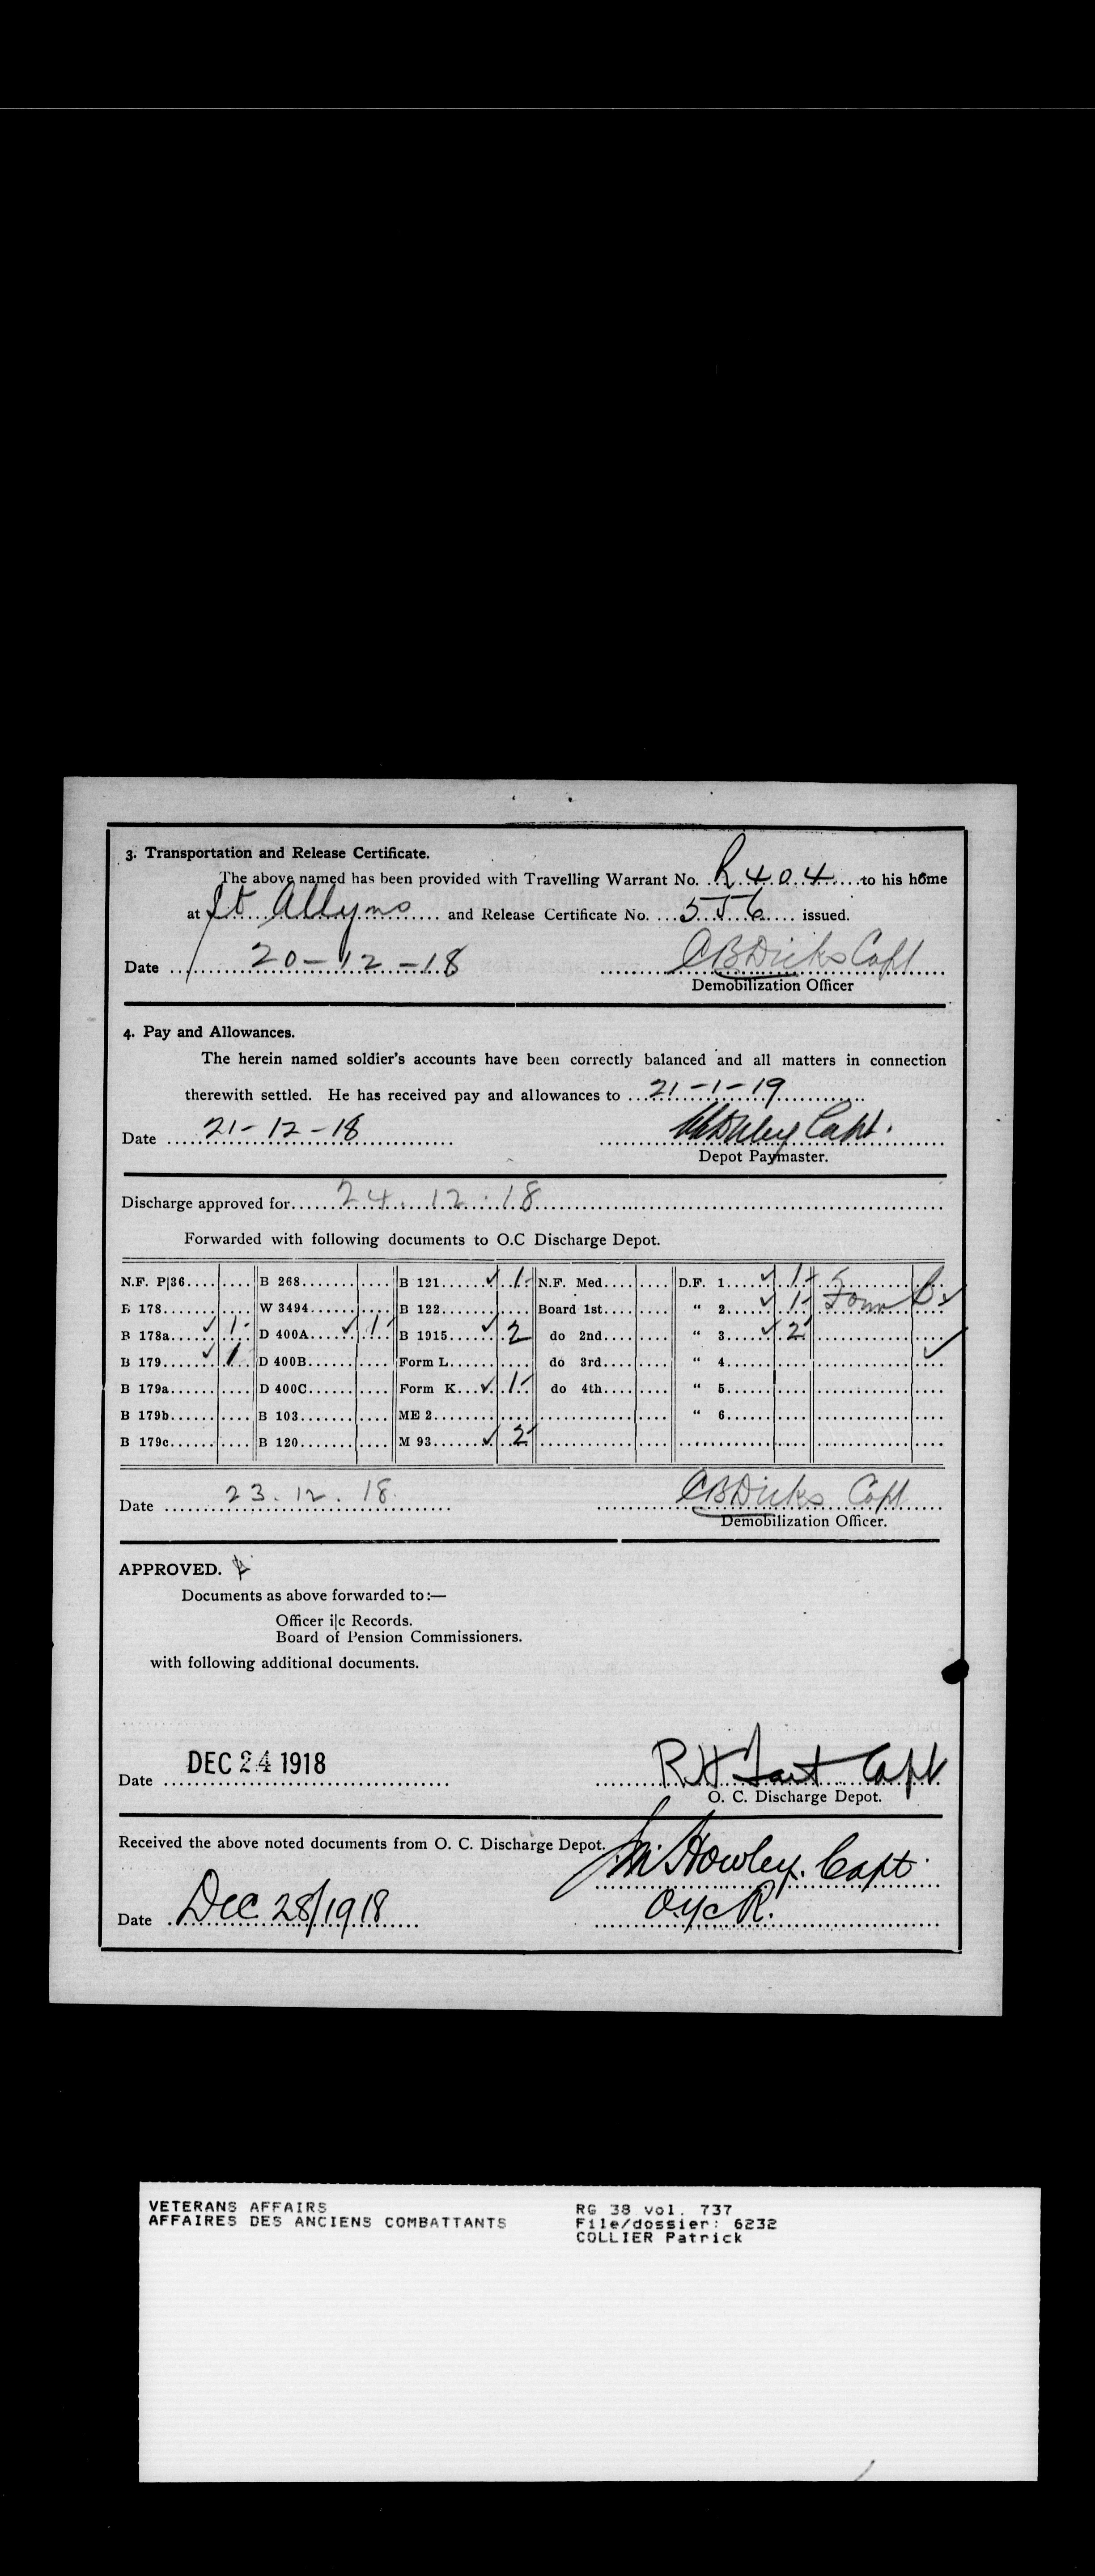 3. Transportation and Release Certificate.
The above named has been provided with Travelling Warrant No. R 404 to his home
at St Allyns and Release Certificate No. 556 issued.
Date 20-12-18 CB Dicks Capt
Demobilization Officer
4. Pay and Allowances.
The herein named soldier's accounts have been correctly balanced and all matters in connection
therewith settled. He has received pay and allowances to 21-1-19
Date 21-12-18 Capt.
Depot Paymaster.
Discharge approved for 24.12.18
Forwarded with following documents to O.C Discharge Depot.
N.F. P|36 B 268 B 121 ✓ 1 N.F. Med. D.F. 1 ✓ 1
B 178 W 3494 B 122 Board 1st " 2 ✓ 1 Form B ✓
B 178a ✓ 1 D 400A ✓ 1 B 1915 ✓ 2 do 2nd " 3 ✓ 2
B 179 ✓ 1 D 400B Form L do 3rd " 4 ✓
B 179a D 400C Form K ✓ 1 do 4th " 5
B 179b B 103 ME 2 " 6
B 179c B 120 M 93 ✓ 2
Date 23.12.18 CB Dicks Capt
Demobilization Officer.
APPROVED.
Documents as above forwarded to:—
Officer i|c Records.
Board of Pension Commissioners.
with following additional documents.
Date DEC 24 1918 R H Tait Capt
O. C. Discharge Depot.
Received the above noted documents from O. C. Discharge Depot. Howley. Capt.
Date Dec 28/1918 O i/c R.
VETERANS AFFAIRS RG 38 vol. 737
AFFAIRES DES ANCIENS COMBATTANTS File/dossier: 6232
COLLIER Patrick